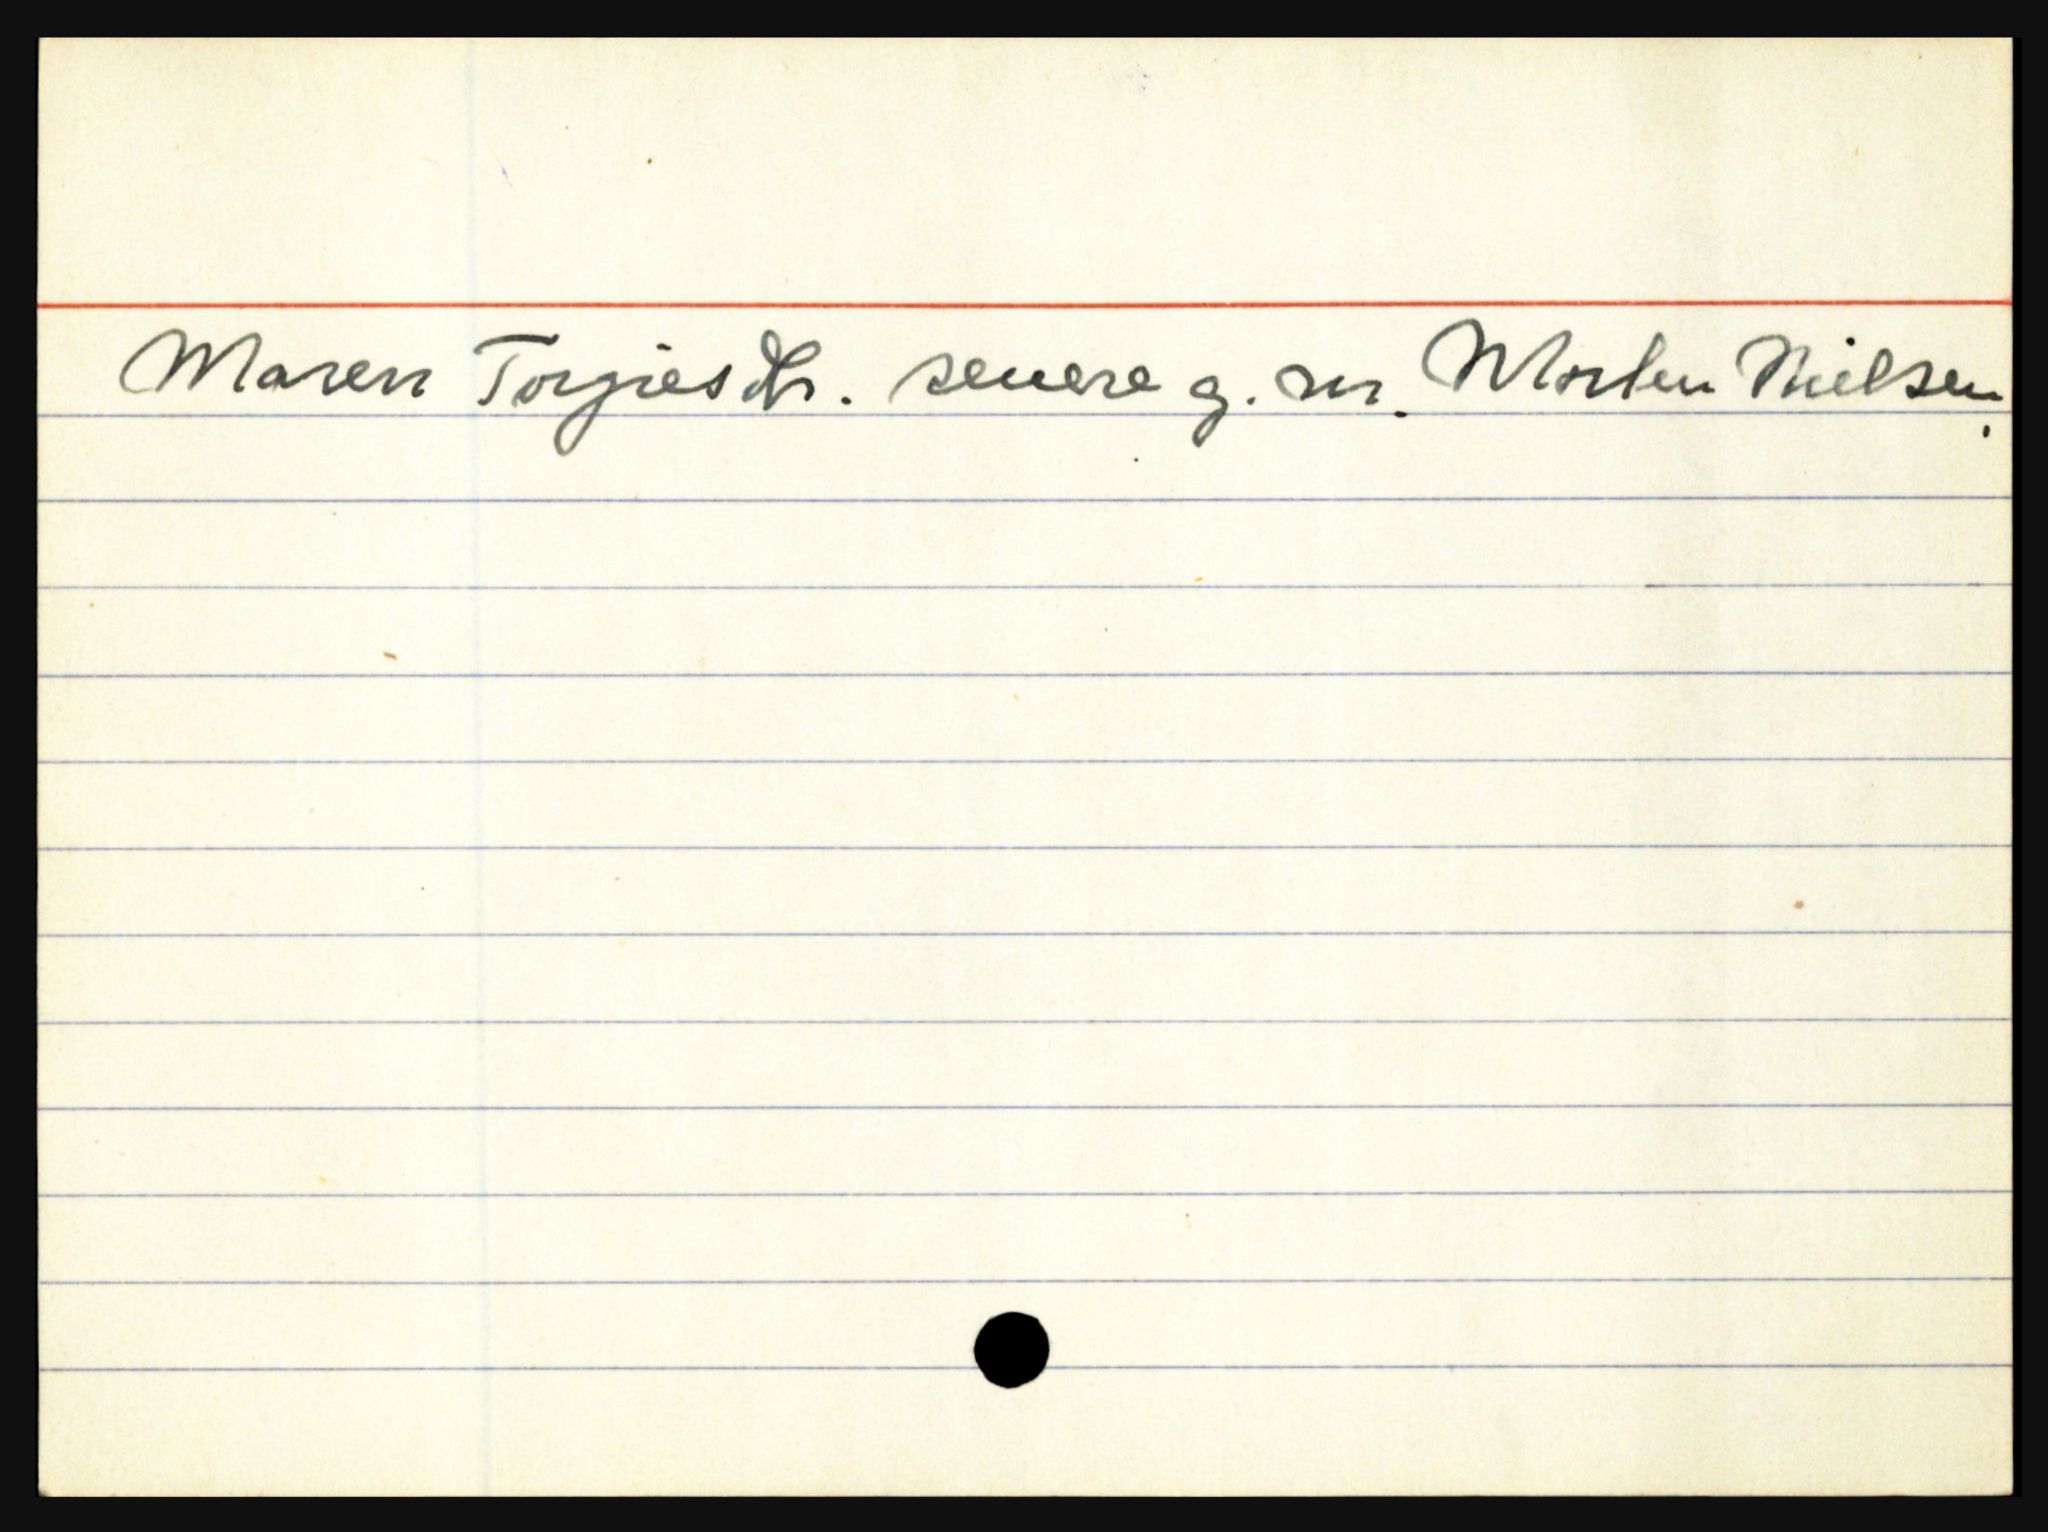 Maren Torjesdtr. senere g. m. Morten Nielsen.